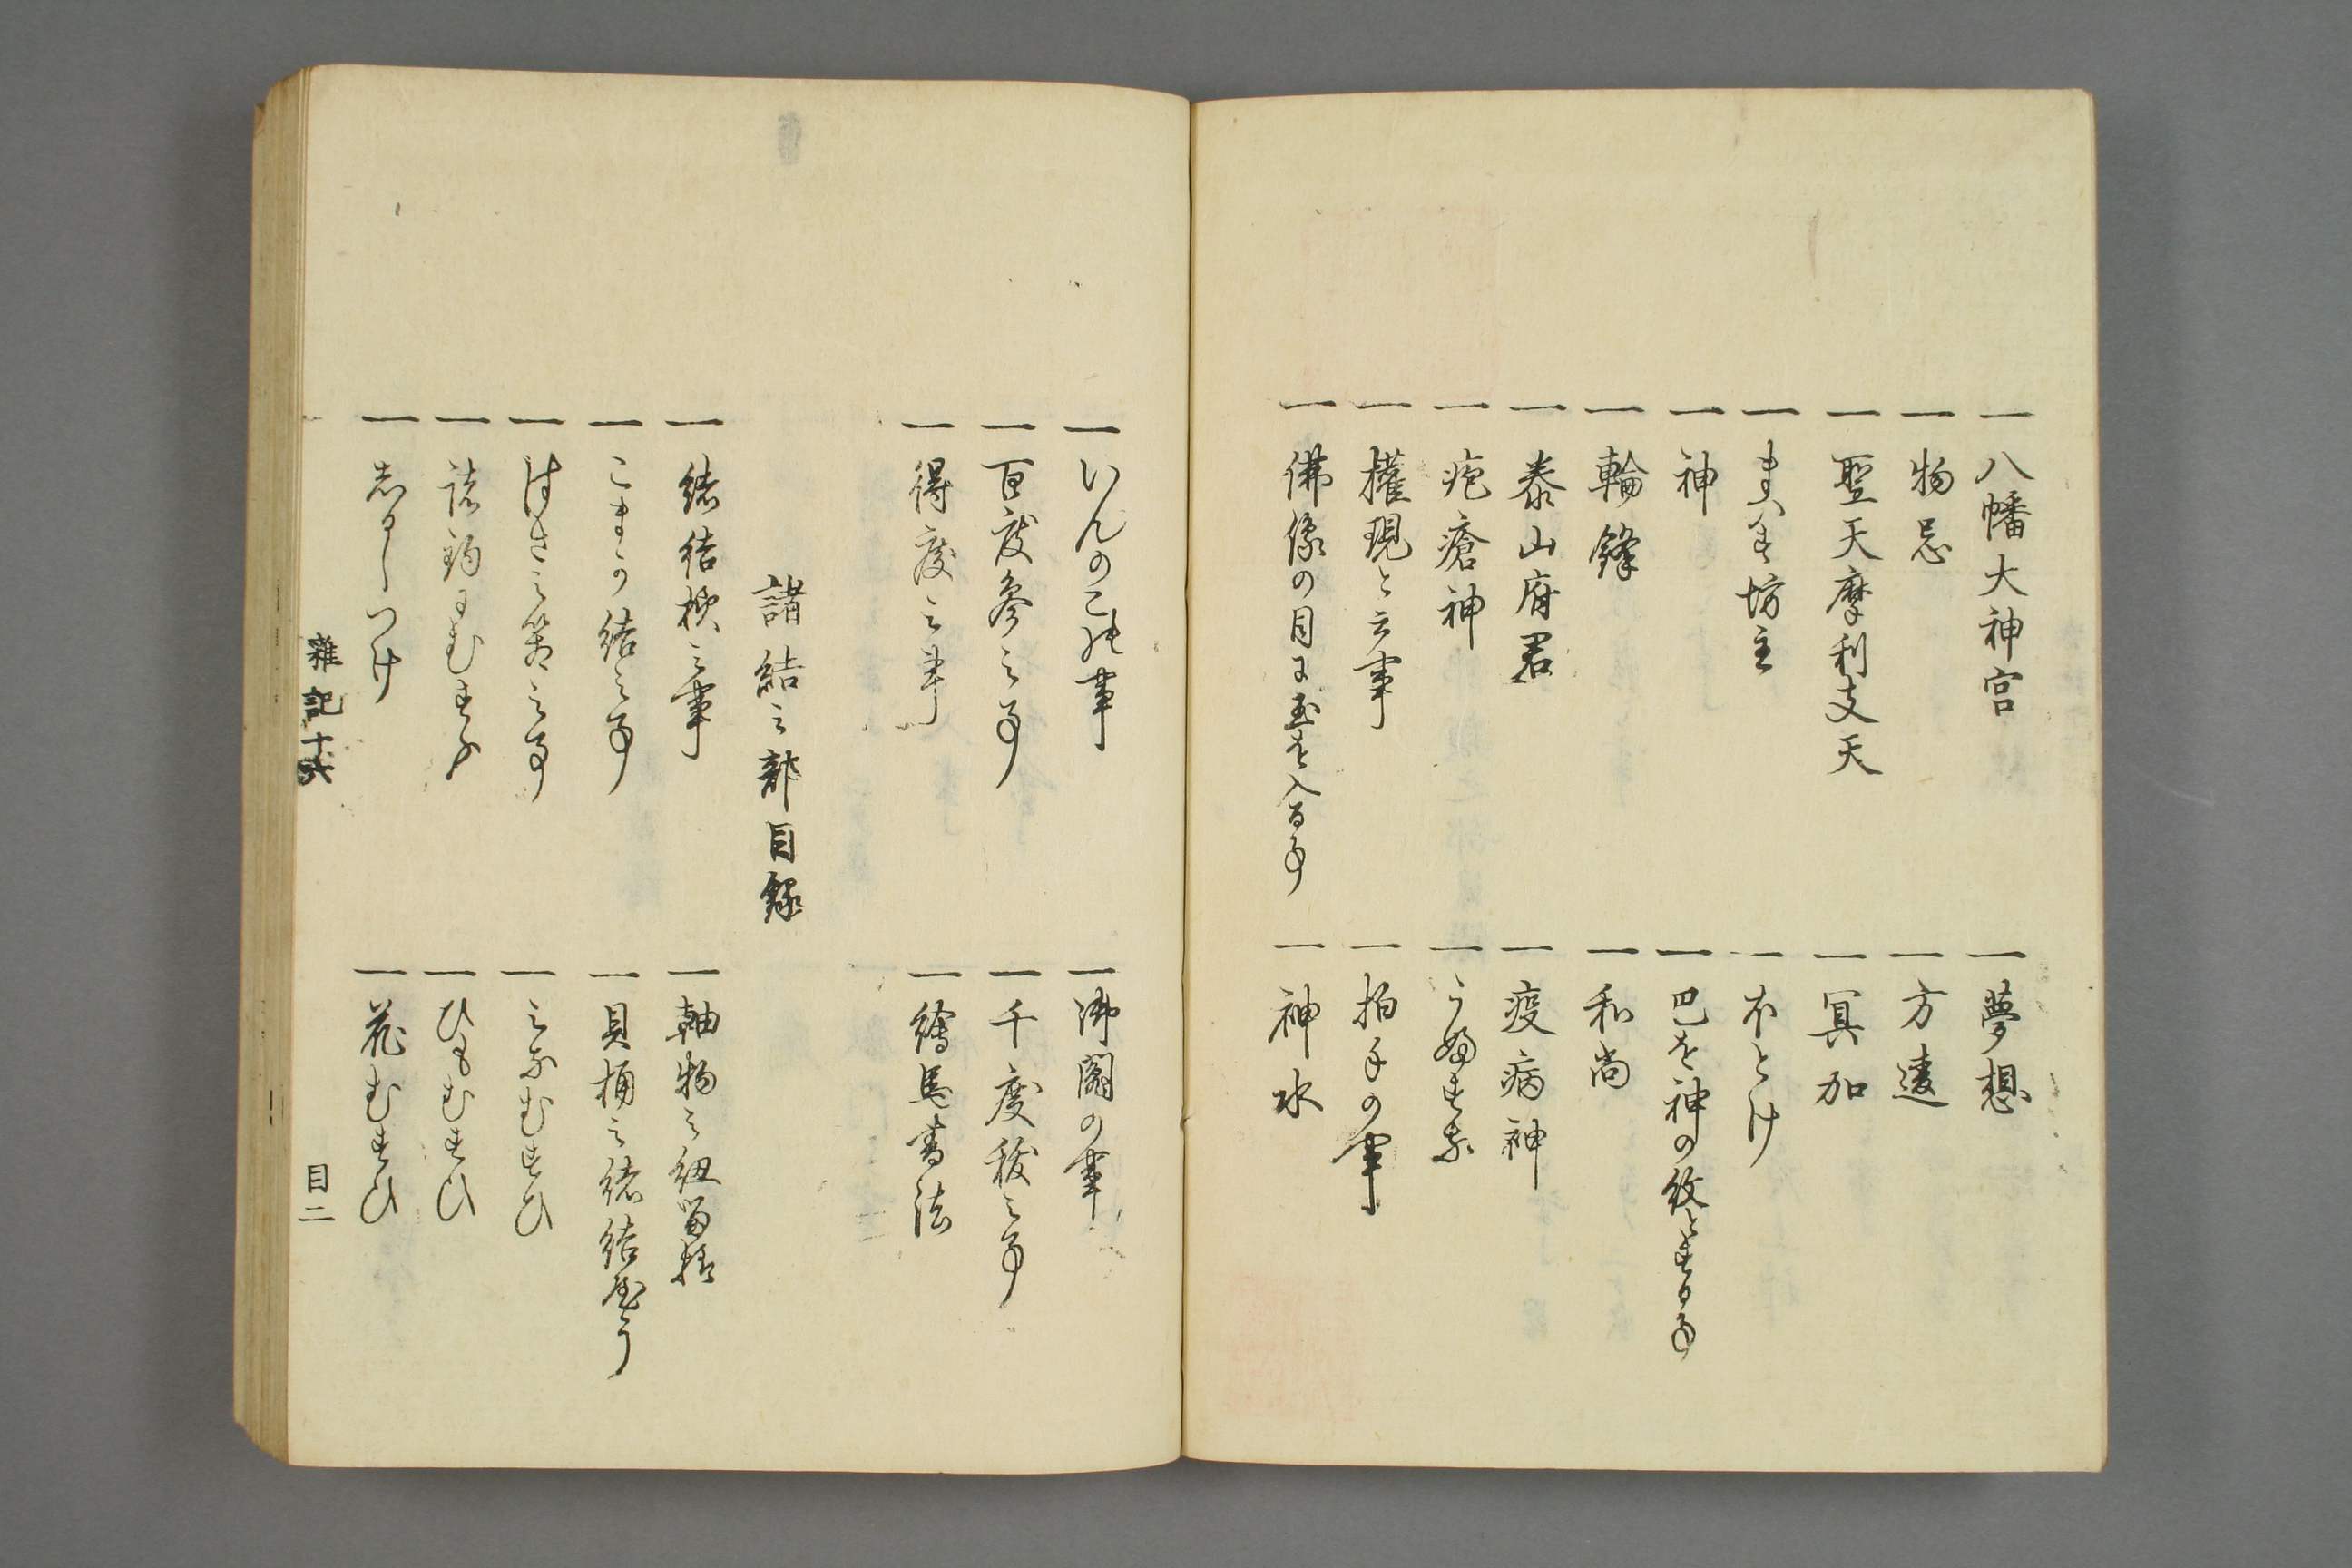 一 八幡大神宮
一 夢想
一 物忌
一 方違
一 聖天摩利支天
一 冥加
一 まいす坊主
一 ほとけ
一 神
一 巴を神の紋とする事
一 輪鋒
一 和尚
一 泰山府君
一 疫病神
一 疱瘡神
一 うぶすな
一 権現と云事
一 拍手の事
一 佛像の目に玉を入る事
一 神水
一 いんのこの事
一 佛閣の事
一 百度参之事
一 千度祓之事
一 得度之事
一 繪馬書法
諸結之部目録
一 緒結様之事
一 軸物之紐留様
一 結之事
一 貝桶之緒結やう
一 之事
一 ミなむすひ
一 むすひ
一 ひもむすひ
一 しるしつけ
一 花むすひ
雑記十六
目二